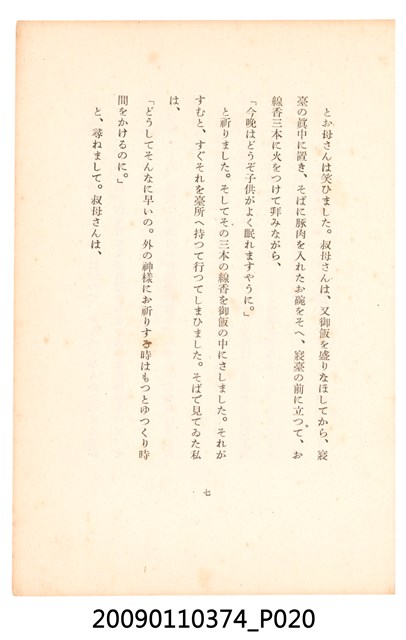 とお母さんは笑ひました。叔母さんは、又御飯を盛りなほしてから、寢
臺の眞中に置き、そばに豚肉を入れたお碗をそへ、寢臺の前に立つて、お
線香三本に火をつけて拜みながら、
「今晩はどうぞ子供がよく眠れますやうに。」
と祈りました。そしてその三本の線香を御飯の中にさしました。それが
すむと、すぐそれを臺所へ持つて行つてしまひました。そばで見てゐた私
は、
「どうしてそんなに早いの。外の神樣にお祈りする時はもつとゆつくり時
間をかけるのに。」
と、尋ねまして。叔母さんは、
七
20090110374_P020